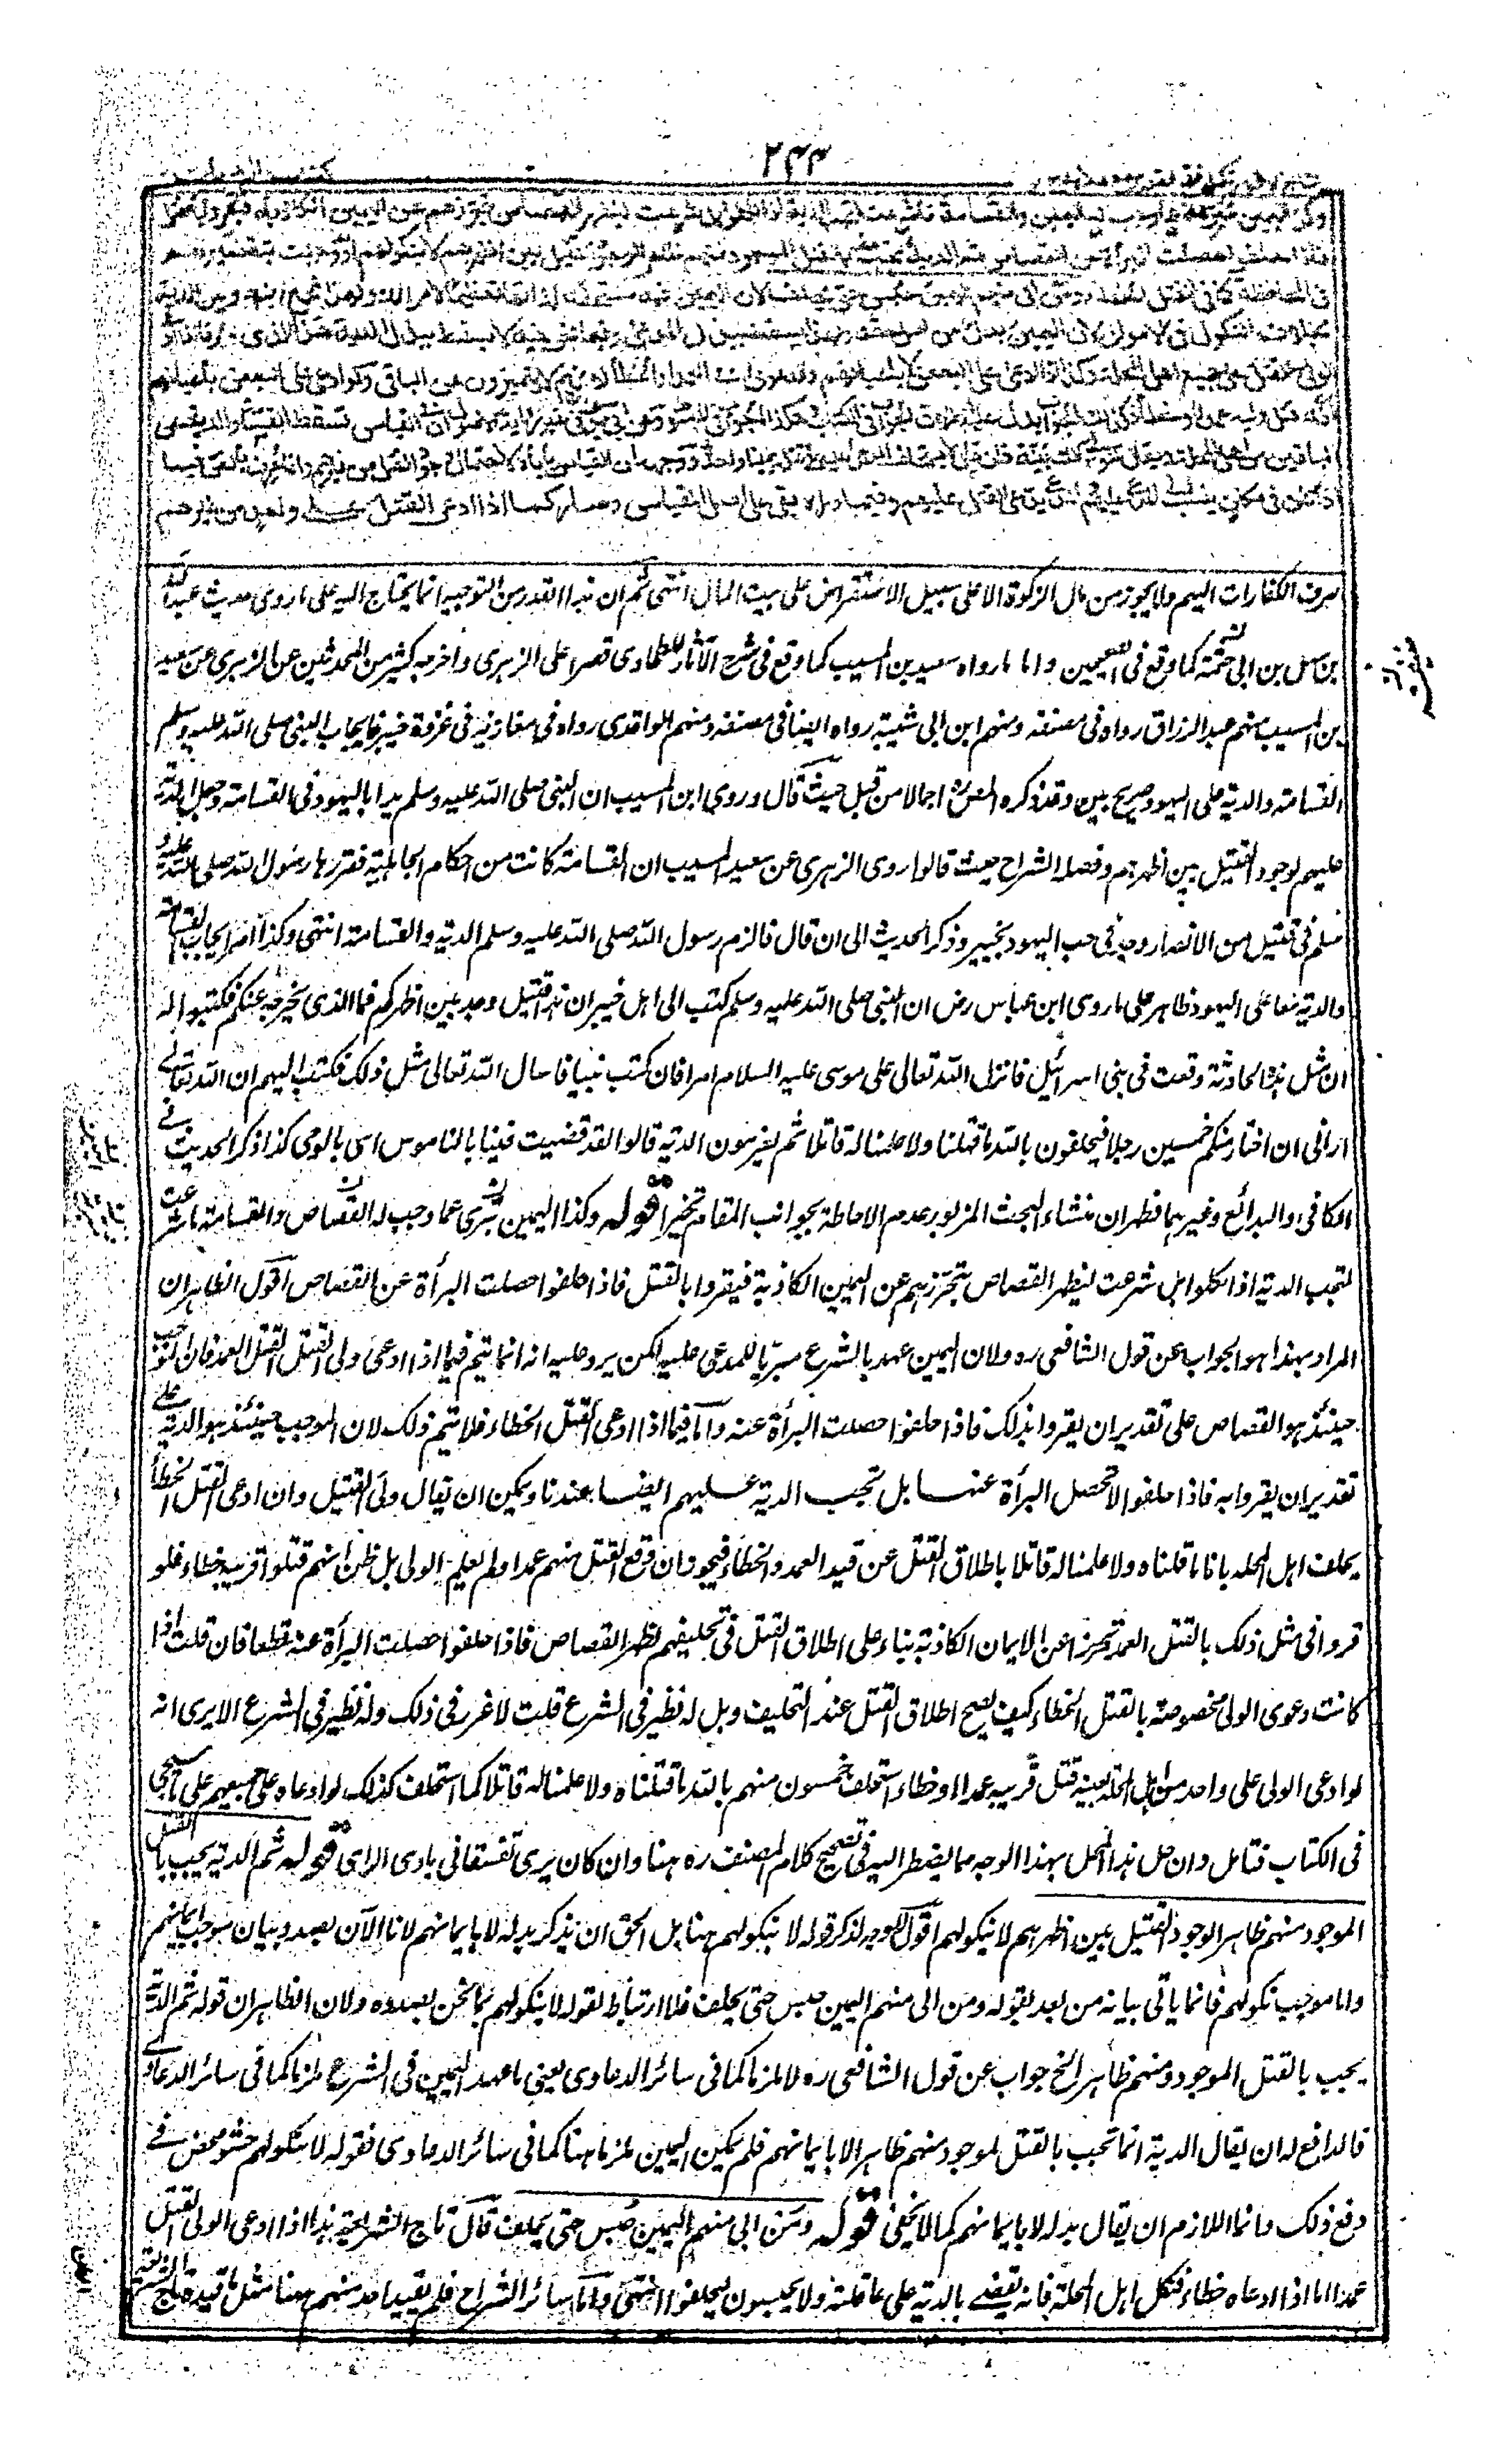 ٢٤٣
وكذا اليمين مبرئة عما وجب له اليمين والقسامة ما شرعت لتجب الدية اذا نكلوا بل شرعت ليظهر القصاص بتحرزهم عن اليمين الكاذبة فيقروا بالقتل
فاذا حلفوا حصلت البرأة عن القصاص ثم الدية تجب بالقتل الموجود منهم ظاهرا لوجود القتيل بين اظهرهم لا بنكولهم او وجبت بتقصيرهم
في المحافظة كما في القتل الخطأ ومن ابى منهم اليمين حبس حتى يحلف لان اليمين فيه مستحقة لذاتها تعظيما لامر الدم ولهذا يجمع بينه وبين الدية
بخلاف النكول في الاموال لان اليمين بدل عن اصل حقه ولهذا يسقط ببذل المدعى وفيما نحن فيه لا يسقط ببذل الدية هذا الذي ذكرنا اذا
ادعى الولي القتل على جميع اهل المحلة وكذا اذا ادعى على البعض لا باعيانهم والدعوى في العمد او الخطأ لانهم لا يتميزون عن الباقي ولو ادعى على البعض باعيانهم
انه قتل وليه عمدا او خطأ فكذلك الجواب يدل عليه اطلاق الجواب في الكتاب وهكذا الجواب في المبسوط وعن ابي يوسف في غير رواية الاصول ان في القياس تسقط القسامة والدية عن
الباقين من اهل المحلة ويقال للولي ألك بينة فان قال لا يستحلف المدعى عليه على قتله يمينا واحدة ووجهه ان القياس يأباه لاحتمال وجود القتل من غيرهم وانما عرف بالنص فيما
اذا كان في مكان ينسب الى المدعى عليهم والمدعي يدعي القتل عليهم وفيما وراءه بقي على اصل القياس وصار كما اذا ادعى القتل على واحد من غيرهم
صرف الكفارات اليهم ولا يجوز من مال الزكوة الا على سبيل الاستقراض على بيت المال انتهى ثم ان هذا القدر من التوجيه انما يحتاج اليه على ما روى حديث عبد الله
بن سهل بن ابي حثمة كما وقع في الصحيحين واما ما رواه سعيد بن المسيب كما وقع في شرح الآثار للطحاوى قصرا على الزهرى واخرجه كثير من المحدثين عن الزهرى عن سعيد
بن المسيب منهم عبد الرزاق رواه في مصنفه ومنهم ابن ابى شيبة رواه ايضا في مصنفه ومنهم الواقدى رواه في مغازيه في غزوة خيبر فايجاب النبي صلى الله عليه وسلم
القسامة والدية على اليهود صريح بين وقد ذكره المص ره اجمالا من قبل حيث قال وروى ابن المسيب ان النبي صلى الله عليه وسلم بدأ باليهود في القسامة وجعل الدية
عليهم لوجود القتيل بين اظهرهم وفصله الشراح حيث قالوا روى الزهرى عن سعيد المسيب ان القسامة كانت من احكام الجاهلية فقررها رسول الله صلى الله عليه و
سلم في قتيل من الانصار وجد في جب اليهود بخيبر وذكر الحديث الى ان قال فالزم رسول الله صلى الله عليه وسلم الدية والقسامة انتهى وكذا امر ايجاب القسامة
والدية معا على اليهود ظاهر على ما روى ابن عباس رض ان النبي صلى الله عليه وسلم كتب الى اهل خيبر ان هذا قتيل وجد بين اظهركم فما الذى يخرجه عنكم فكتبوا اله
ان مثل هذه الحادثة وقعت في بني اسرائيل فانزل الله تعالى على موسى عليه السلام امرا فان كنت نبيا فاسال الله تعالى مثل ذلك فكتب اليهم ان الله تعالى
ارانى ان اختار منكم خمسين رجلا فيحلفون بالله ما قتلنا ولا علمنا له قاتلا ثم يغرمون الدية قالوا لقد قضيت فينا بالناموس اى بالوحى كذا ذكر الحديث في
الكافى والبدائع وغيرهما فظهر ان منشاء البحث المزبور عدم الاحاطة بجوانب المقام تخير اقوله وكذا اليمين تبرئ عما وجب له القصاص والقسامة ما شرعت
لتجب الدية اذا نكلوا بل شرعت ليظهر القصاص بتحرزهم عن اليمين الكاذبة فيقروا بالقتل فاذا حلفوا حصلت البرأة عن القصاص اقول الظاهر ان
المراد بهذا هو الجواب عن قول الشافعى ره ولان اليمين عهد بالشرع مبرّيا للمدعى عليه لكن يرد عليه انه انما يتم فيما اذا ادعى ولى القتيل القتل العمد فان الموجب
حينئذ هو القصاص على تقدير ان يقروا بذلك فاذا حلفوا حصلت البرأة عنه واما فيما اذا ادعى القتل الخطاء فلا يتم ذلك لان الموجب حينئذ هو الدية على
تقدير ان يقروا به فاذا حلفوا لا تحصل البرأة عنها بل تجب الدية عليهم ايضا عندنا ويمكن ان يقال ولى القتيل وان ادعى القتل الخطأ
يحلف اهل المحله بانا ما قتلناه ولا علمنا له قاتلا باطلاق القتل عن قيد العمد والخطاء فيجوز ان وقع القتل منهم عمدا ولم يعلم الولى بل ظن انهم قتلوا قريبه خطاء فلو
قروا في مثل ذلك بالقتل العمد تحرزا عن الايمان الكاذبة بناء على اطلاق القتل في تحليفهم لظهر القصاص فاذا حلفوا حصلت البرأة عنه قطعا فان قلت اذا
كانت دعوى الولى مخصوصة بالقتل الخطاء كيف يصح اطلاق القتل عند التحليف وهل له نظير في الشرع قلت لا غرر في ذلك وله نظير في الشرع الا يرى انه
لو ادعى الولى على واحد من اهل المحلة بعينه قتل قريبه عمدا او خطاء استحلف خمسون منهم بالله ما قتلناه ولا علمنا له قاتلا كما استحلف كذلك لو ادعاه على جميعهم على ما سيجئ
في الكتاب فتامل وان حل هذا المحل بهذا الوجه مما يضطر اليه في تصحيح كلام المصنف ره هنا وان كان يرى تعسفا في بادى الراى قوله ثم الدية يجب بالقتل
الموجود منهم ظاهرا لوجود القتيل بين اظهرهم لا بنكولهم اقول لا وجه لذكر قوله لا بنكولهم هنا بل الحق ان يذكر بدله لا بايمانهم لانا الآن بصدد بيان موجب ايمانهم
واما موجب نكولهم فانما ياتى بيانه من بعد بقوله ومن ابى منهم اليمين حبس حتى يحلف فلا ارتباط لقوله لا بنكولهم بما نحن بصدده ولان الظاهر ان قوله ثم الدية
يجب بالقتل الموجود منهم ظاهرا الخ جواب عن قول الشافعى ره لا ملزما كما في سائر الدعاوى يعنى ما عهد اليمين في الشرع ملزما كما في سائر الدعاوى
فالدافع له ان يقال الدية انما تجب بالقتل الموجود منهم ظاهرا لا بايمانهم فلم يكن اليمين ملزما هنا كما في سائر الدعاوى فقوله لا بنكولهم حشو محض في
دفع ذلك وانما اللازم ان يقال بدله لا بايمانهم كما لا يخفى قوله ومن ابى منهم اليمين حبس حتى يحلف قال تاج الشريعة هذا اذا ادعى الولى القتل
عمدا اما اذا ادعاه خطاء فنكل اهل المحلة فانه يقضى بالدية على عاقلته ولا يحبسون ليحلفوا انتهى واما سائر الشراح فلم يقيد احد منهم هنا مثل ما قيده تاج الشريعة